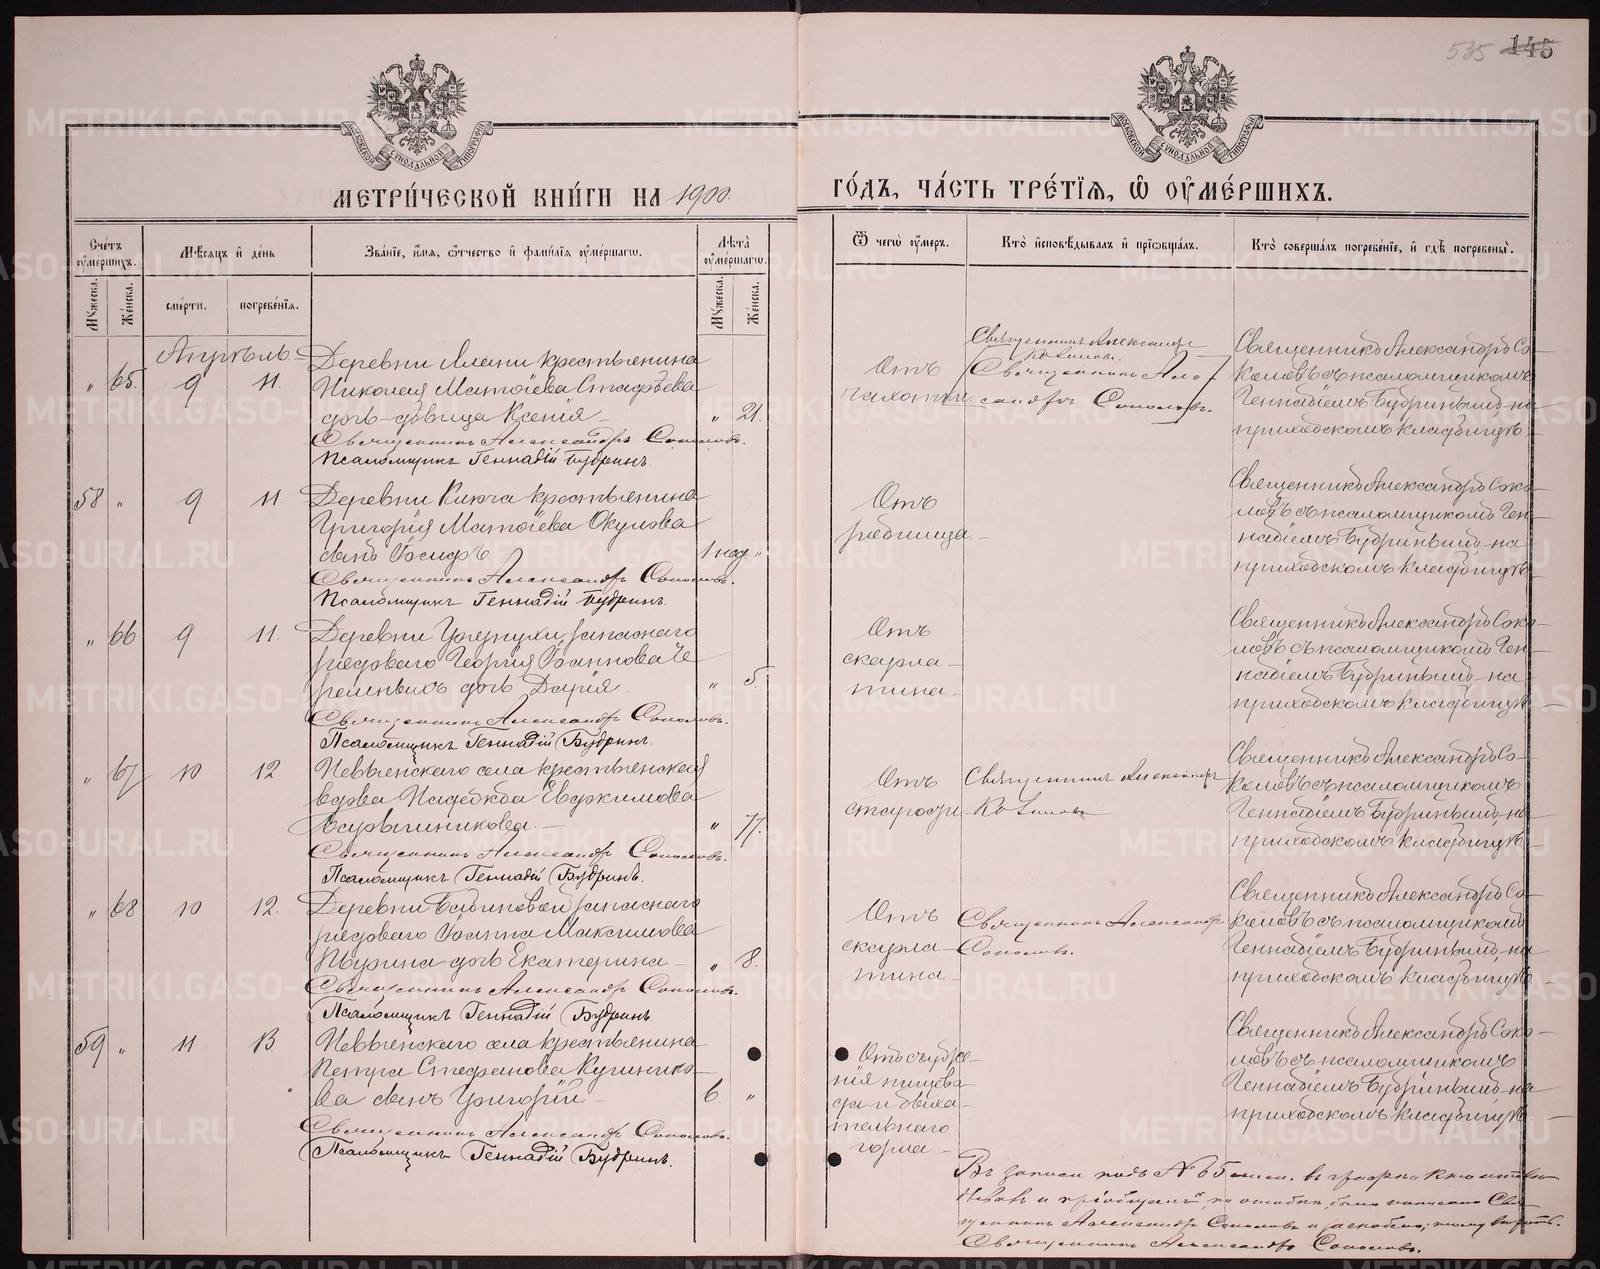 535 145
МЕТРИ́ЧЕСКОЙ КНИ́ГИ НА 1900.
ГО́ДЪ, ЧА́СТЬ ТРЕ́ТЇѦ, Ѡ҆ ОУ҆МЕ́РШИХЪ.
Сче́тъ оу҆ме́ршихъ.
Мѣ́сѧцъ и҆ де́нь
Зва́нїе, и҆́мѧ, ѻ҆́тчество и҆ фами́лїѧ оу҆ме́ршагѡ.
Лѣ́та оу҆ме́ршагѡ.
Ѿ чегѡ̀ оу҆́меръ.
Кто̀ и҆сповѣ́дывалъ и҆ прїѡбща́лъ.
Кто̀ соверша́лъ погребе́нїе, и҆ гдѣ̀ погребены̀.
Мꙋ́жеска. Же́нска.
сме́рти. погребе́нїѧ.
Мꙋ́жеска. Же́нска.
Апрѣль
" 65. 9 11. Деревни крестьянина
Николая Матѳіева
дочь-дѣвица Ксенія " 21.
Священникъ Александръ Соколовъ.
Псаломщикъ Геннадій Будринъ.
Отъ
чахотки
Священникъ Александръ
Священникъ Александръ Соколовъ.
Священникъ Александръ Со-
коловъ съ псаломщикомъ
Геннадіемъ Будринымъ на
приходскомъ кладбищѣ
58 " 9 11. Деревни крестьянина
Григорія Матѳіева Окулова
сынъ Іосифъ 1 нед. "
Священникъ Александръ Соколовъ.
Псаломщикъ Геннадій Будринъ.
Отъ
родимца
Священникъ Александръ Соко-
ловъ съ псаломщикомъ Ген-
надіемъ Будринымъ на
приходскомъ кладбищѣ
" 66 9 11. Деревни запаснаго
рядоваго Георгія Іоаннова Че-
ремныхъ дочь Дарія " 5.
Священникъ Александръ Соколовъ.
Псаломщикъ Геннадій Будринъ.
Отъ
скарла-
тина
Священникъ Александръ Соко-
ловъ съ псаломщикомъ Ген-
надіемъ Будринымъ на
приходскомъ кладбищѣ
" 67 10 12 Невьянскаго села крестьянская
вдова Надежда Евдокимова
" 77.
Священникъ Александръ Соколовъ.
Псаломщикъ Геннадій Будринъ.
Отъ
старости
Священникъ Александръ
Священникъ Александръ Со-
коловъ съ псаломщикомъ
Геннадіемъ Будринымъ на
приходскомъ кладбищѣ
" 68 10 12. Деревни Бабиновой запаснаго
рядоваго Іоанна Максимова
Пырина дочь Екатерина " 8.
Священникъ Александръ Соколовъ.
Псаломщикъ Геннадій Будринъ.
Отъ
скарла-
тина
Священникъ Александръ
Соколовъ.
Священникъ Александръ Со-
коловъ съ псаломщикомъ
Геннадіемъ Будринымъ на
приходскомъ кладбищѣ
59 " 11 13. Невьянскаго села крестьянина
Петра Стефанова
сынъ Григорій 6. "
Священникъ Александръ Соколовъ.
Псаломщикъ Геннадій Будринъ.
Отъ съуже-
нія пищева-
го и дыха-
тельнаго
горла
Священникъ Александръ Соко-
ловъ съ псаломщикомъ
Геннадіемъ Будринымъ на
приходскомъ кладбищѣ
Въ записи подъ № 65 въ графѣ: Кто исповѣ-
и пріобщалъ, по ошибкѣ было написано Свя-
щенникъ Александръ Соколовъ и
Священникъ Александръ Соколовъ.
METRIKI.GASO-URAL.RU